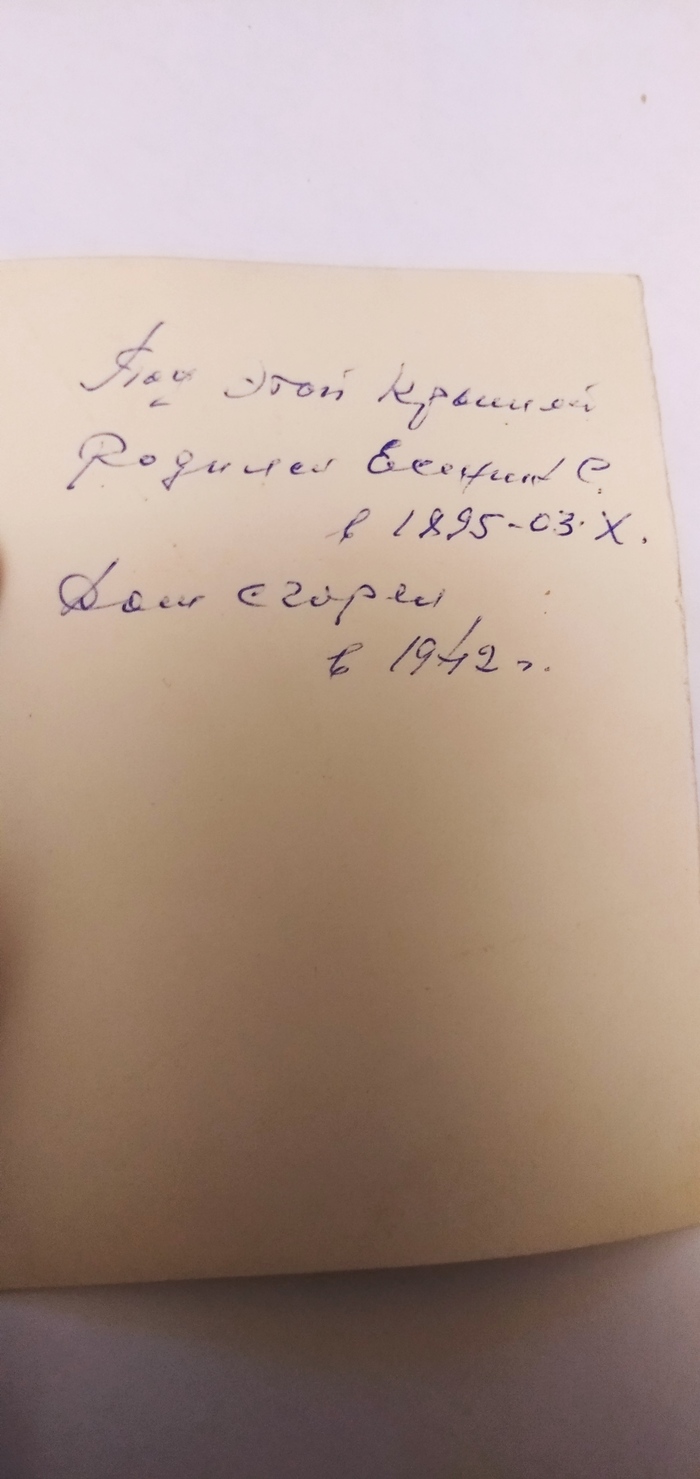 Под этой крышей
Родился Есенин С.
в 1895-03.X.
Дом сгорел
в 1942 г.